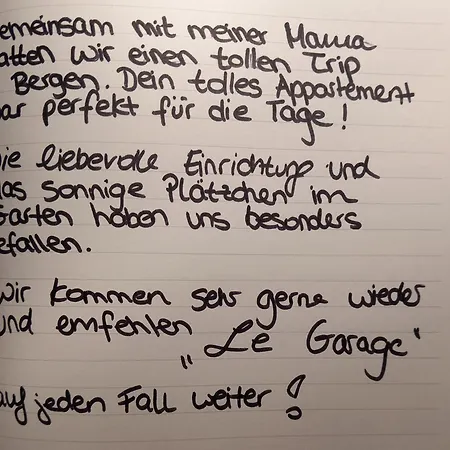 emeinsam mit meiner Mama
atten wir einen tollen Trip
Bergen. Dein tolles Appartement
ar perfekt für die Tage!
ie liebevolle Einrichtung und
as sonnige Plätzchen im
Garten haben uns besonders
efallen.
wir kommen sehr gerne wieder
und emfehlen
„Le Garage"
auf jeden Fall weiter!